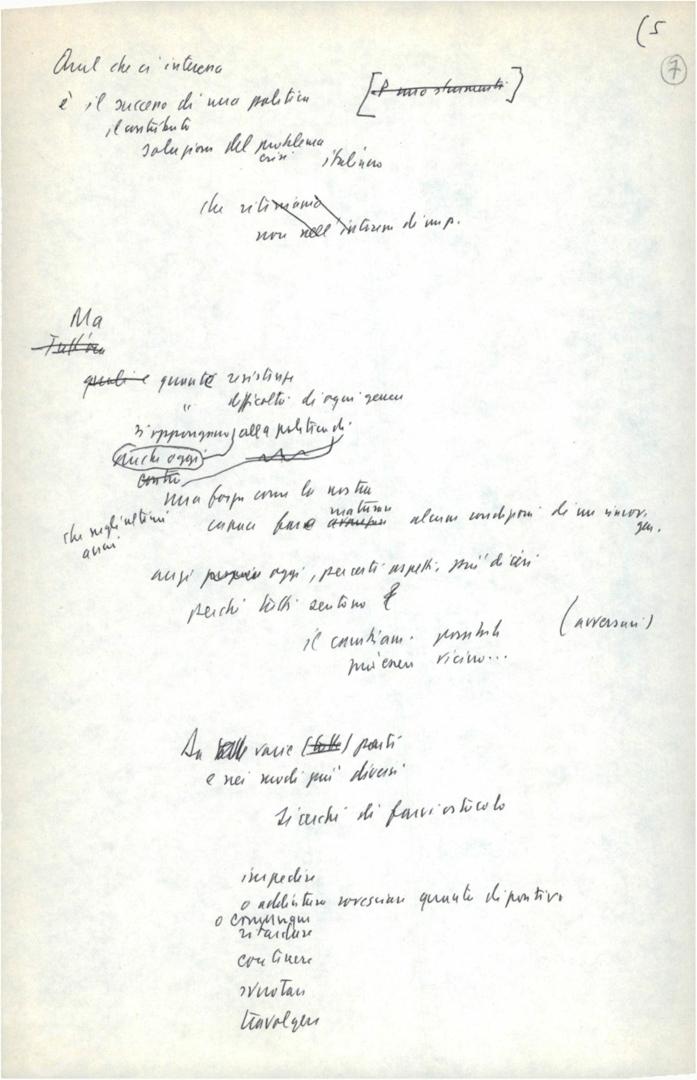 (5
7
Quel che ci interessa
è il successo di una politica
il contributo
soluzione del problema italiano
crisi
che riteniamo
non nell'interesse di un p.
Ma
Tutt'ora
quali e quante resistenze
" difficoltà di ogni genere
si oppongono alla politica di
Anche oggi
contro
una forza come la nostra
che negli ultimi anni
capace fare maturare alcune condizioni di un rinnov.
gen.
anzi proprio oggi, per certi aspetti, più di ieri
perché tutti sentono
il cambiam. possibile (avversari)
può essere vicino...
Da varie (tutte) parti
e nei modi più diversi
Si cerchi di farvi ostacolo
impedire
o addirittura rovesciare quanto di positivo
o comunque
ritardare
contenere
svuotare
travolgere